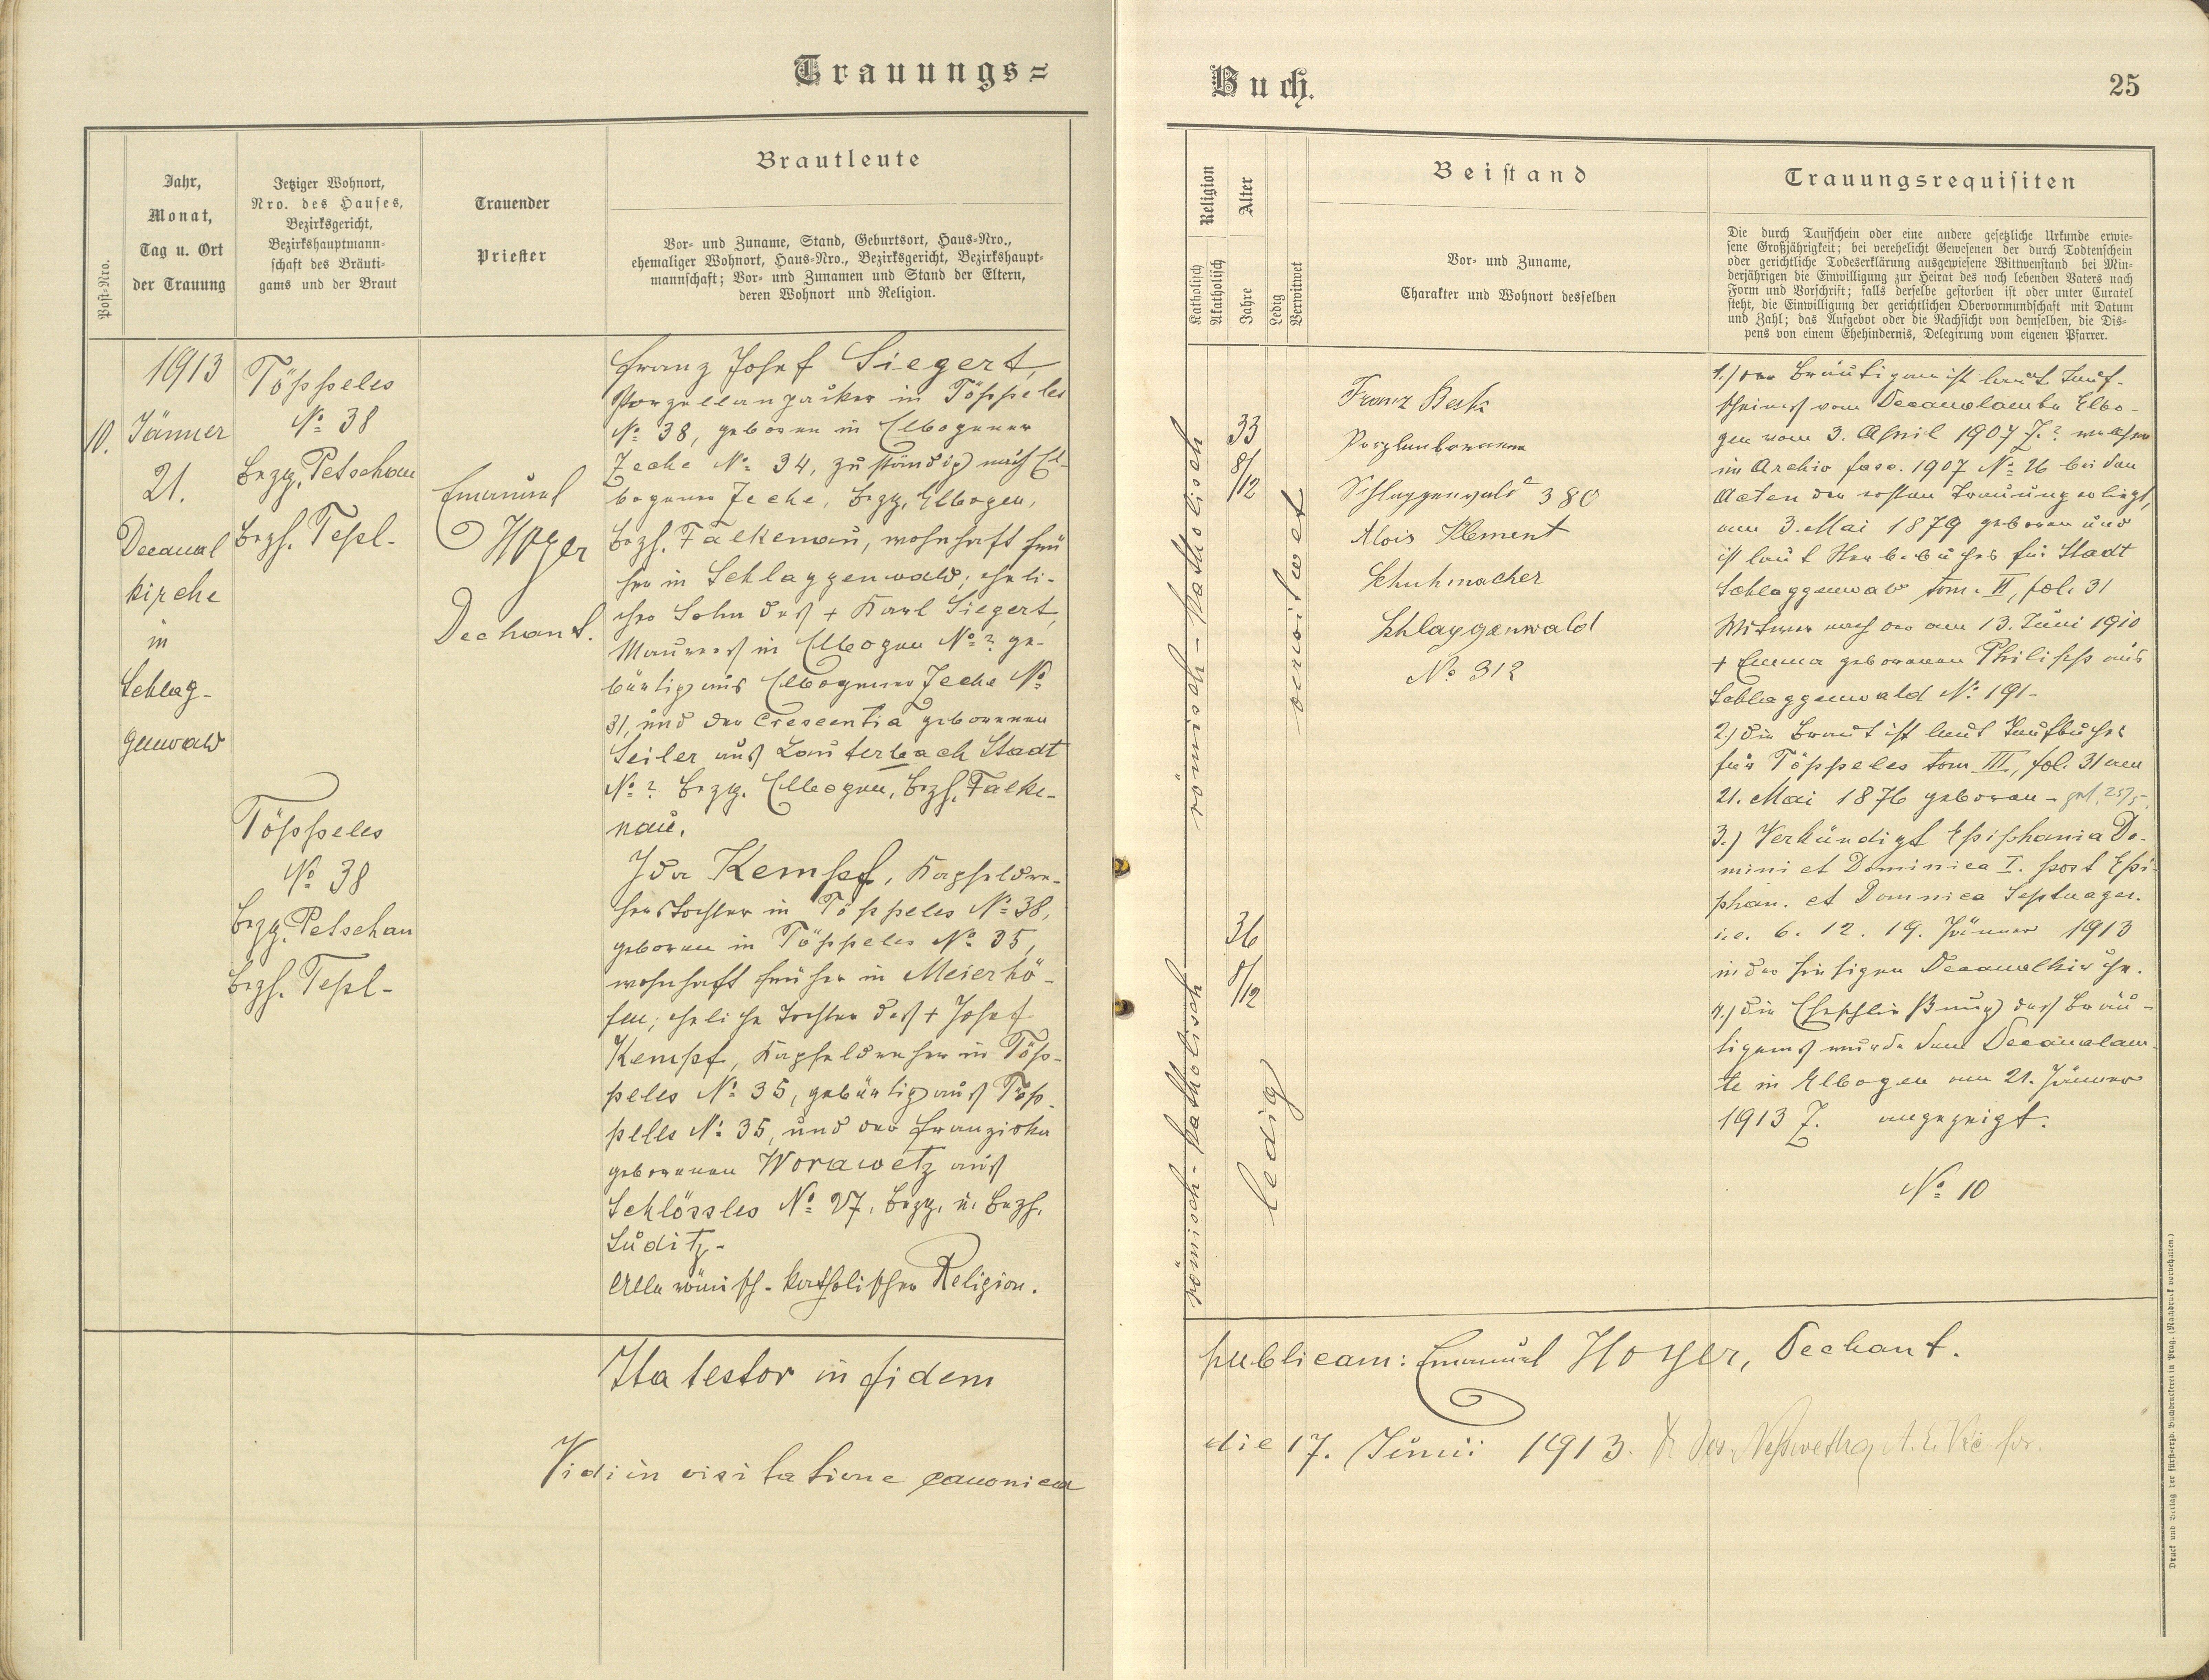 Trauungs=
Buch.
25
Post-Nro.
Jahr,
Monat,
Tag u. Ort
der Trauung
Jetziger Wohnort,
Nro. des Hauses,
Bezirksgericht,
Bezirkshauptmann-
schaft des Bräuti-
gams und der Braut
Trauender
Priester
Brautleute
Vor- und Zuname, Stand, Geburtsort, Haus-Nro.,
ehemaliger Wohnort, Haus-Nro., Bezirksgericht, Bezirkshaupt-
mannschaft; Vor- und Zunamen und Stand der Eltern,
deren Wohnort und Religion.
Religion
Katholisch
Akatholisch
Alter
Jahre
Ledig
Verwitwet
Beistand
Vor- und Zuname,
Charakter und Wohnort desselben
Trauungsrequisiten
Die durch Taufschein oder eine andere gesetzliche Urkunde erwie-
sene Großjährigkeit; bei verehelicht Gewesenen der durch Todtenschein
oder gerichtliche Todeserklärung ausgewiesene Wittwenstand bei Min-
derjährigen die Einwilligung zur Heirat des noch lebenden Vaters nach
Form und Vorschrift; falls derselbe gestorben ist oder unter Curatel
steht, die Einwilligung der gerichtlichen Obervormundschaft mit Datum
und Zahl; das Aufgebot oder die Nachsicht von demselben, die Dis-
pens von einem Ehehindernis, Delegirung vom eigenen Pfarrer.
10.
1913
Jänner
21.
Decanal
kirche
in
Schlag-
genwald
Töppeles
No 38
Bezg. Petschau
Bezh. Tepl-
Töppeles
No 38
Bezg. Petschau
Bezh. Tepl-
Emanuel
Hoyer
Dechant.
Franz Josef Siegert,
Porzellanpacker in Töppeles
No 38, geboren in Elbogener
Zeche No 34, zuständig nach El-
bogener Zeche, Bezg. Elbogen,
Bezh. Falkenau, wohnhaft frü
her in Schlaggenwald; eheli-
cher Sohn des + Karl Siegert,
Maurers in Elbogen No ? ge-
bürtig aus Elbogener Zeche No
31, und der Crescentia geborenen
Seiler aus Lauterbach Stadt
No ? Bezg. Elbogen, Bezh. Falke-
nau.
Ida Kempf, Kapseldre-
herstochter in Töppeles No 38,
geboren in Töppeles No 35,
wohnhaft früher in Meierhö-
fen; eheliche Tochter des + Josef
Kempf, Kapseldreher in Töp-
peles No 35, gebürtig aus Töp-
peles No 35, und der Franziska
geborenen Worawetz aus
Schlössles No 27, Bezg. u. Bezh.
Luditz-
Alle römisch-katholischer Religion.
römisch-katholisch
römisch-katholisch
33
8/12
36
8/12
verwitwet
ledig
Franz Beck
Schlaggenwald 380
Alois Klement
Schuhmacher
Schlaggenwald
No 312
1.) Der Bräutigam ist laut Tauf-
scheines vom Decanalamte Elbo-
gen vom 3. April 1907 Z. ? welcher
im Archiv fasc. 1907 No 26 bei den
Acten der ersten Trauung erliegt,
am 3. Mai 1879 geboren und
ist laut Sterbebuches für Stadt
Schlaggenwald tom. II, fol. 31
Witwer nach der am 13. Juni 1910
+ Emma geborenen Philipp aus
Schlaggenwald No 191-
2.) Die Braut ist laut Taufbuches
für Töppeles tom III, fol. 31 am
21. Mai 1876 geboren - get. 25/5.
3.) Verkündigt Epiphania Do-
mini et Dominica I. post Epi-
phan. et Domnica Septuages.
i.e. 6. 12. 19. Jänner 1913
in der hiesigen Decanalkirche.
4.) Die Eheschließung des Bräu-
tigams wurde dem Decanalam-
te in Elbogen am 21. Jänner
1913 Z. angezeigt.
No 10
Ita testor in fidem
publicam: Emanuel Hoyer, Dechant.
Vidi in visitatione canonica
die 17. Junii 1913.
Druck und Verlag der fürsterzb. Buchdruckerei in Prag. (Nachdruck vorbehalten.)